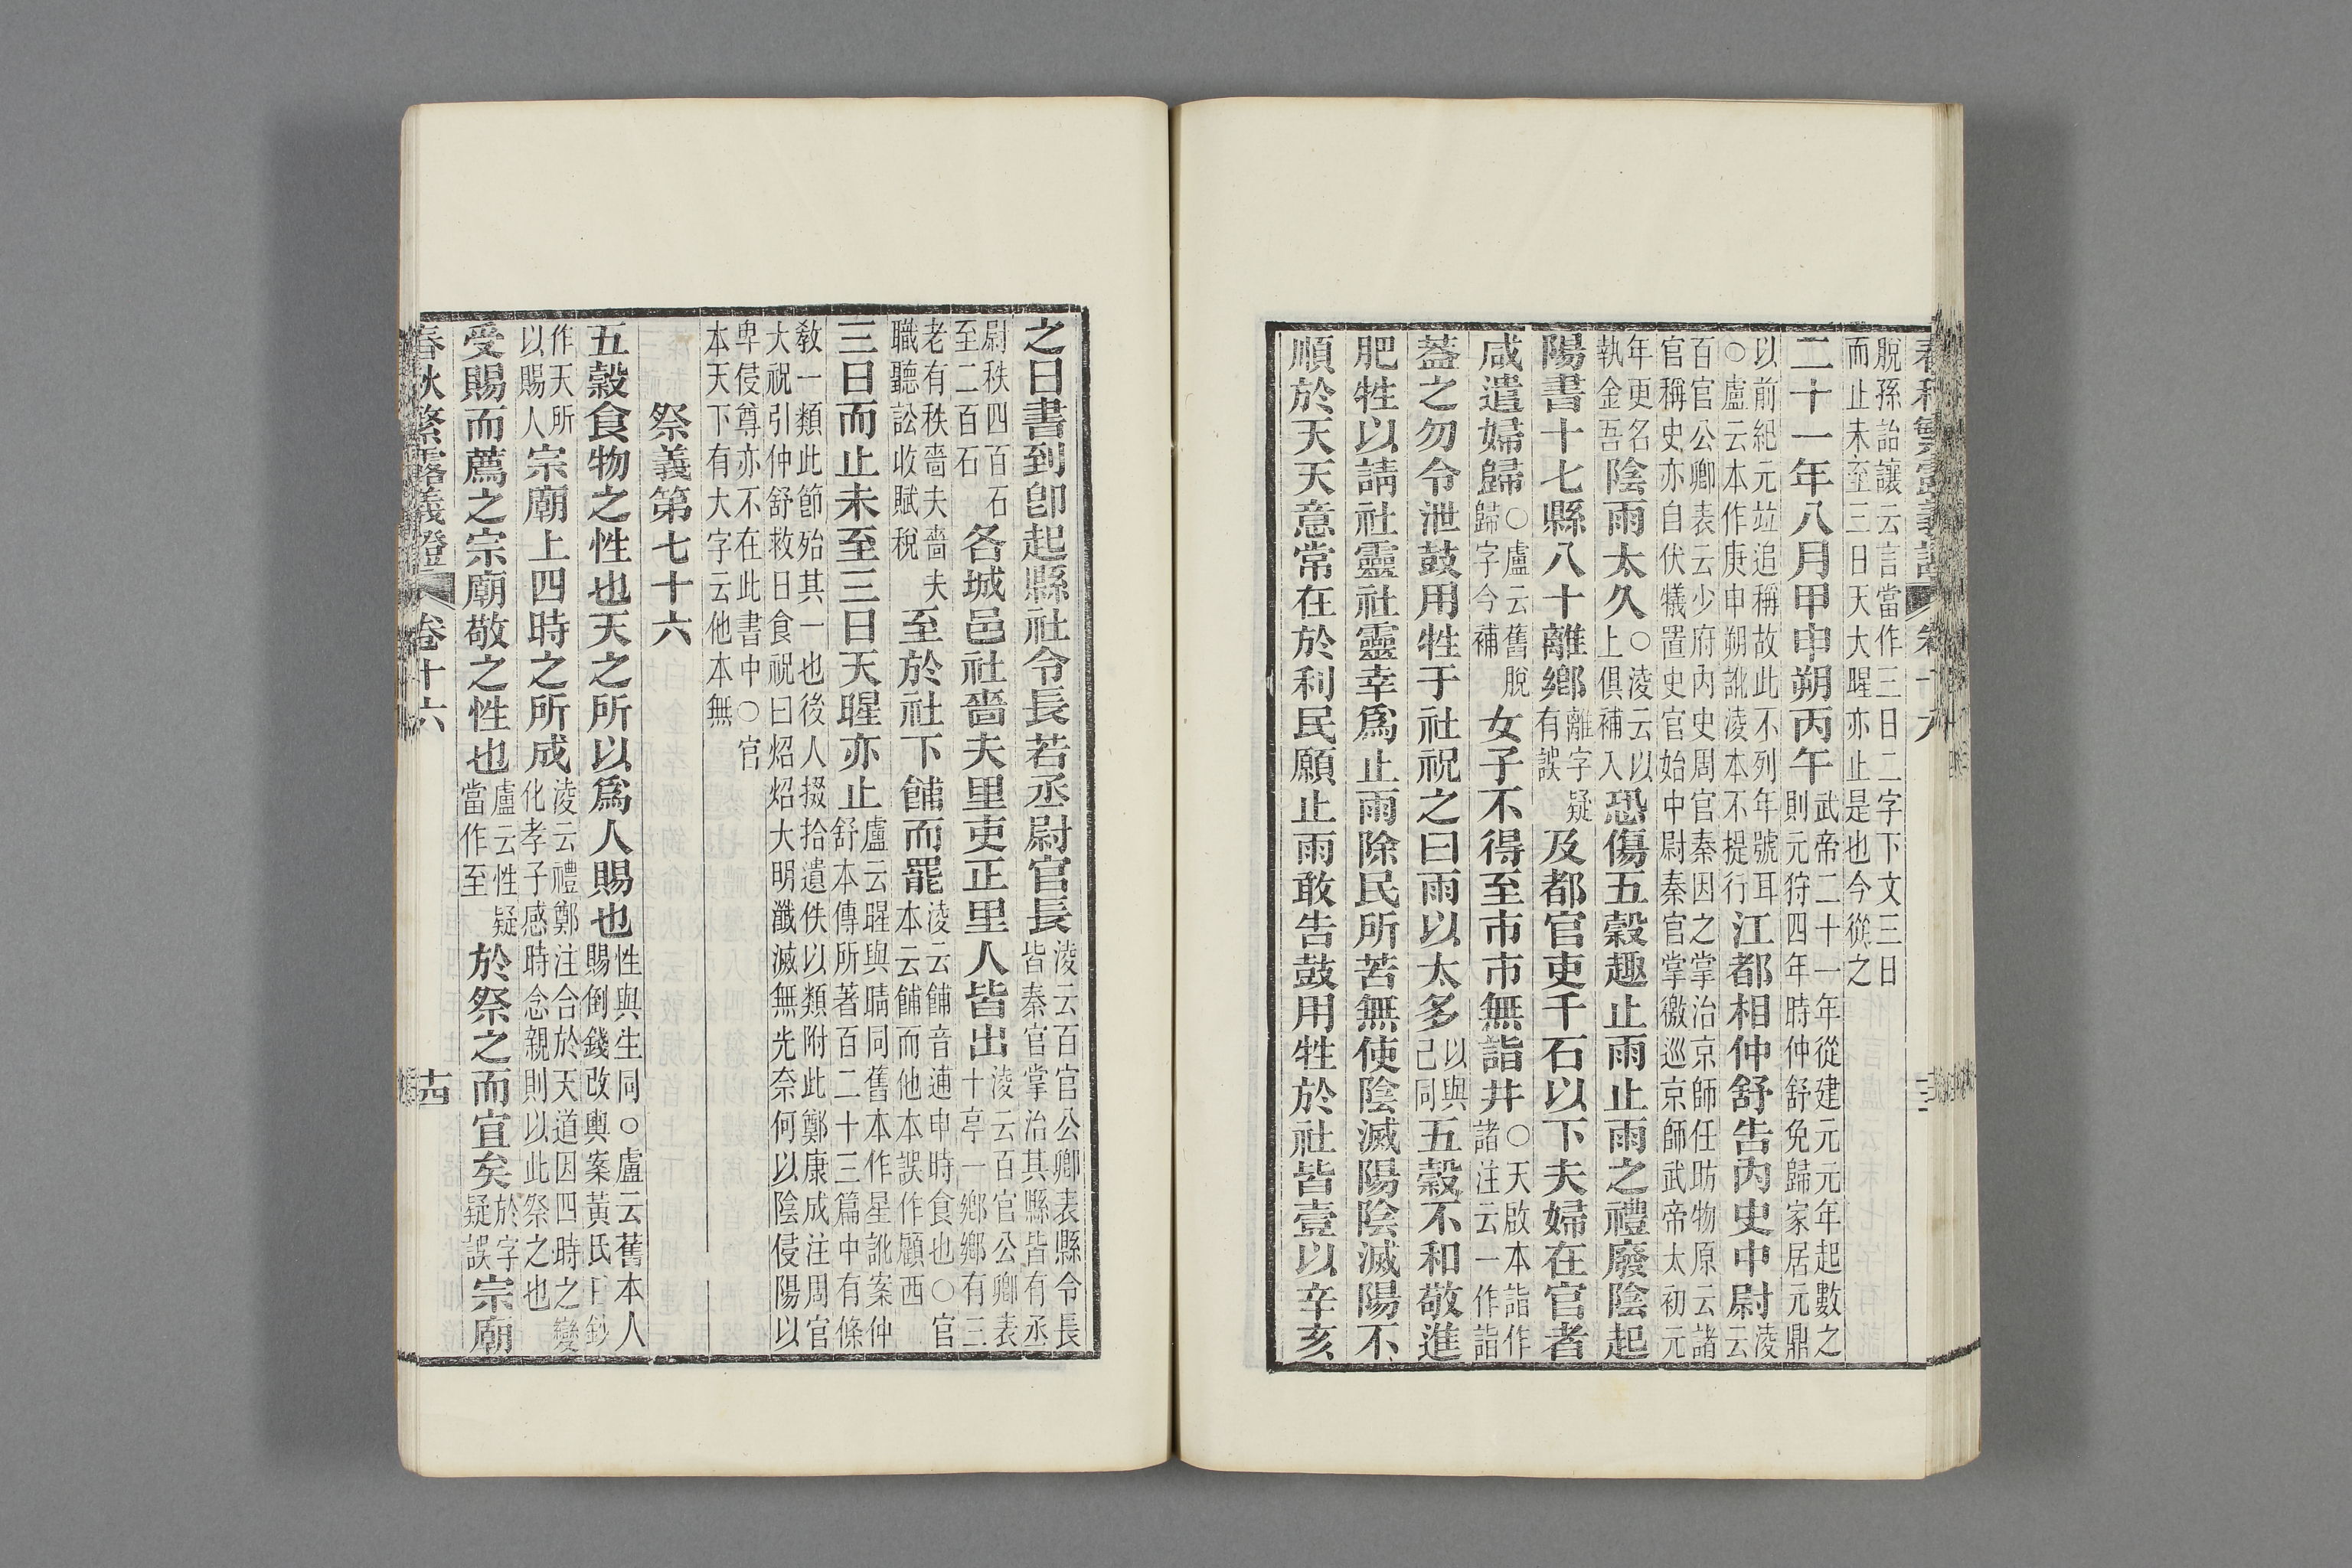 春秋繁露義證 卷十六
脫孫詒讓云言當作三日二字下文三日
而止未至三日天大暒亦止是也今從之
二十一年八月甲申朔丙午武帝二十一年從建元元年起數之
則元狩四年時仲舒免歸家居元鼎
以前紀元竝追稱故此不列年號耳
○盧云本作庚申朔訛淩本不提行江都相仲舒告內史中尉淩云
百官公卿表云少府內史周官秦因之掌治京師任昉物原云諸
官稱史亦自伏犧置史官始中尉秦官掌徼巡京師武帝太初元
年更名
執金吾陰雨太久○淩云以
上俱補入恐傷五穀趣止雨止雨之禮廢陰起
陽書十七縣八十離鄉離字疑
有誤及都官吏千石以下夫婦在官者
咸遣婦歸○盧云舊脫
歸字今補女子不得至市市無詣井○天啟本詣作
諸注云一作詣
葢之勿令泄鼓用牲于社祝之曰雨以太多以與
已同五穀不和敬進
肥牲以請社靈社靈幸爲止雨除民所苦無使陰滅陽陰滅陽不
順於天天意常在於利民願止雨敢告鼓用牲於社皆壹以辛亥
之日書到卽起縣社令長若丞尉官長淩云百官公卿表縣令長
皆秦官掌治其縣皆有丞
尉秩四百石
至二百石各城邑社嗇夫里吏正里人皆出淩云百官公卿表
十亭一鄉鄉有三
老有秩嗇夫嗇夫
職聽訟收賦稅至於社下餔而罷淩云餔音逋申時食也○官
本云餔而他本誤作顧西
三日而止未至三日天暒亦止盧云暒與晴同舊本作星訛案仲
舒本傳所著百二十三篇中有條
敎一類此節殆其一也後人掇拾遺佚以類附此鄭康成注周官
大祝引仲舒救日食祝曰炤炤大明瀸滅無光奈何以陰侵陽以
卑侵尊亦不在此書中○官
本天下有大字云他本無
祭義第七十六
五穀食物之性也天之所以爲人賜也性與生同○盧云舊本人
賜倒錢改輿案黃氏日鈔
作天所
以賜人宗廟上四時之所成淩云禮鄭注合於天道因四時之變
化孝子感時念親則以此祭之也
受賜而薦之宗廟敬之性也盧云性疑
當作至於祭之而宜矣於字
疑誤宗廟
春秋繁露義證 卷十六 十四